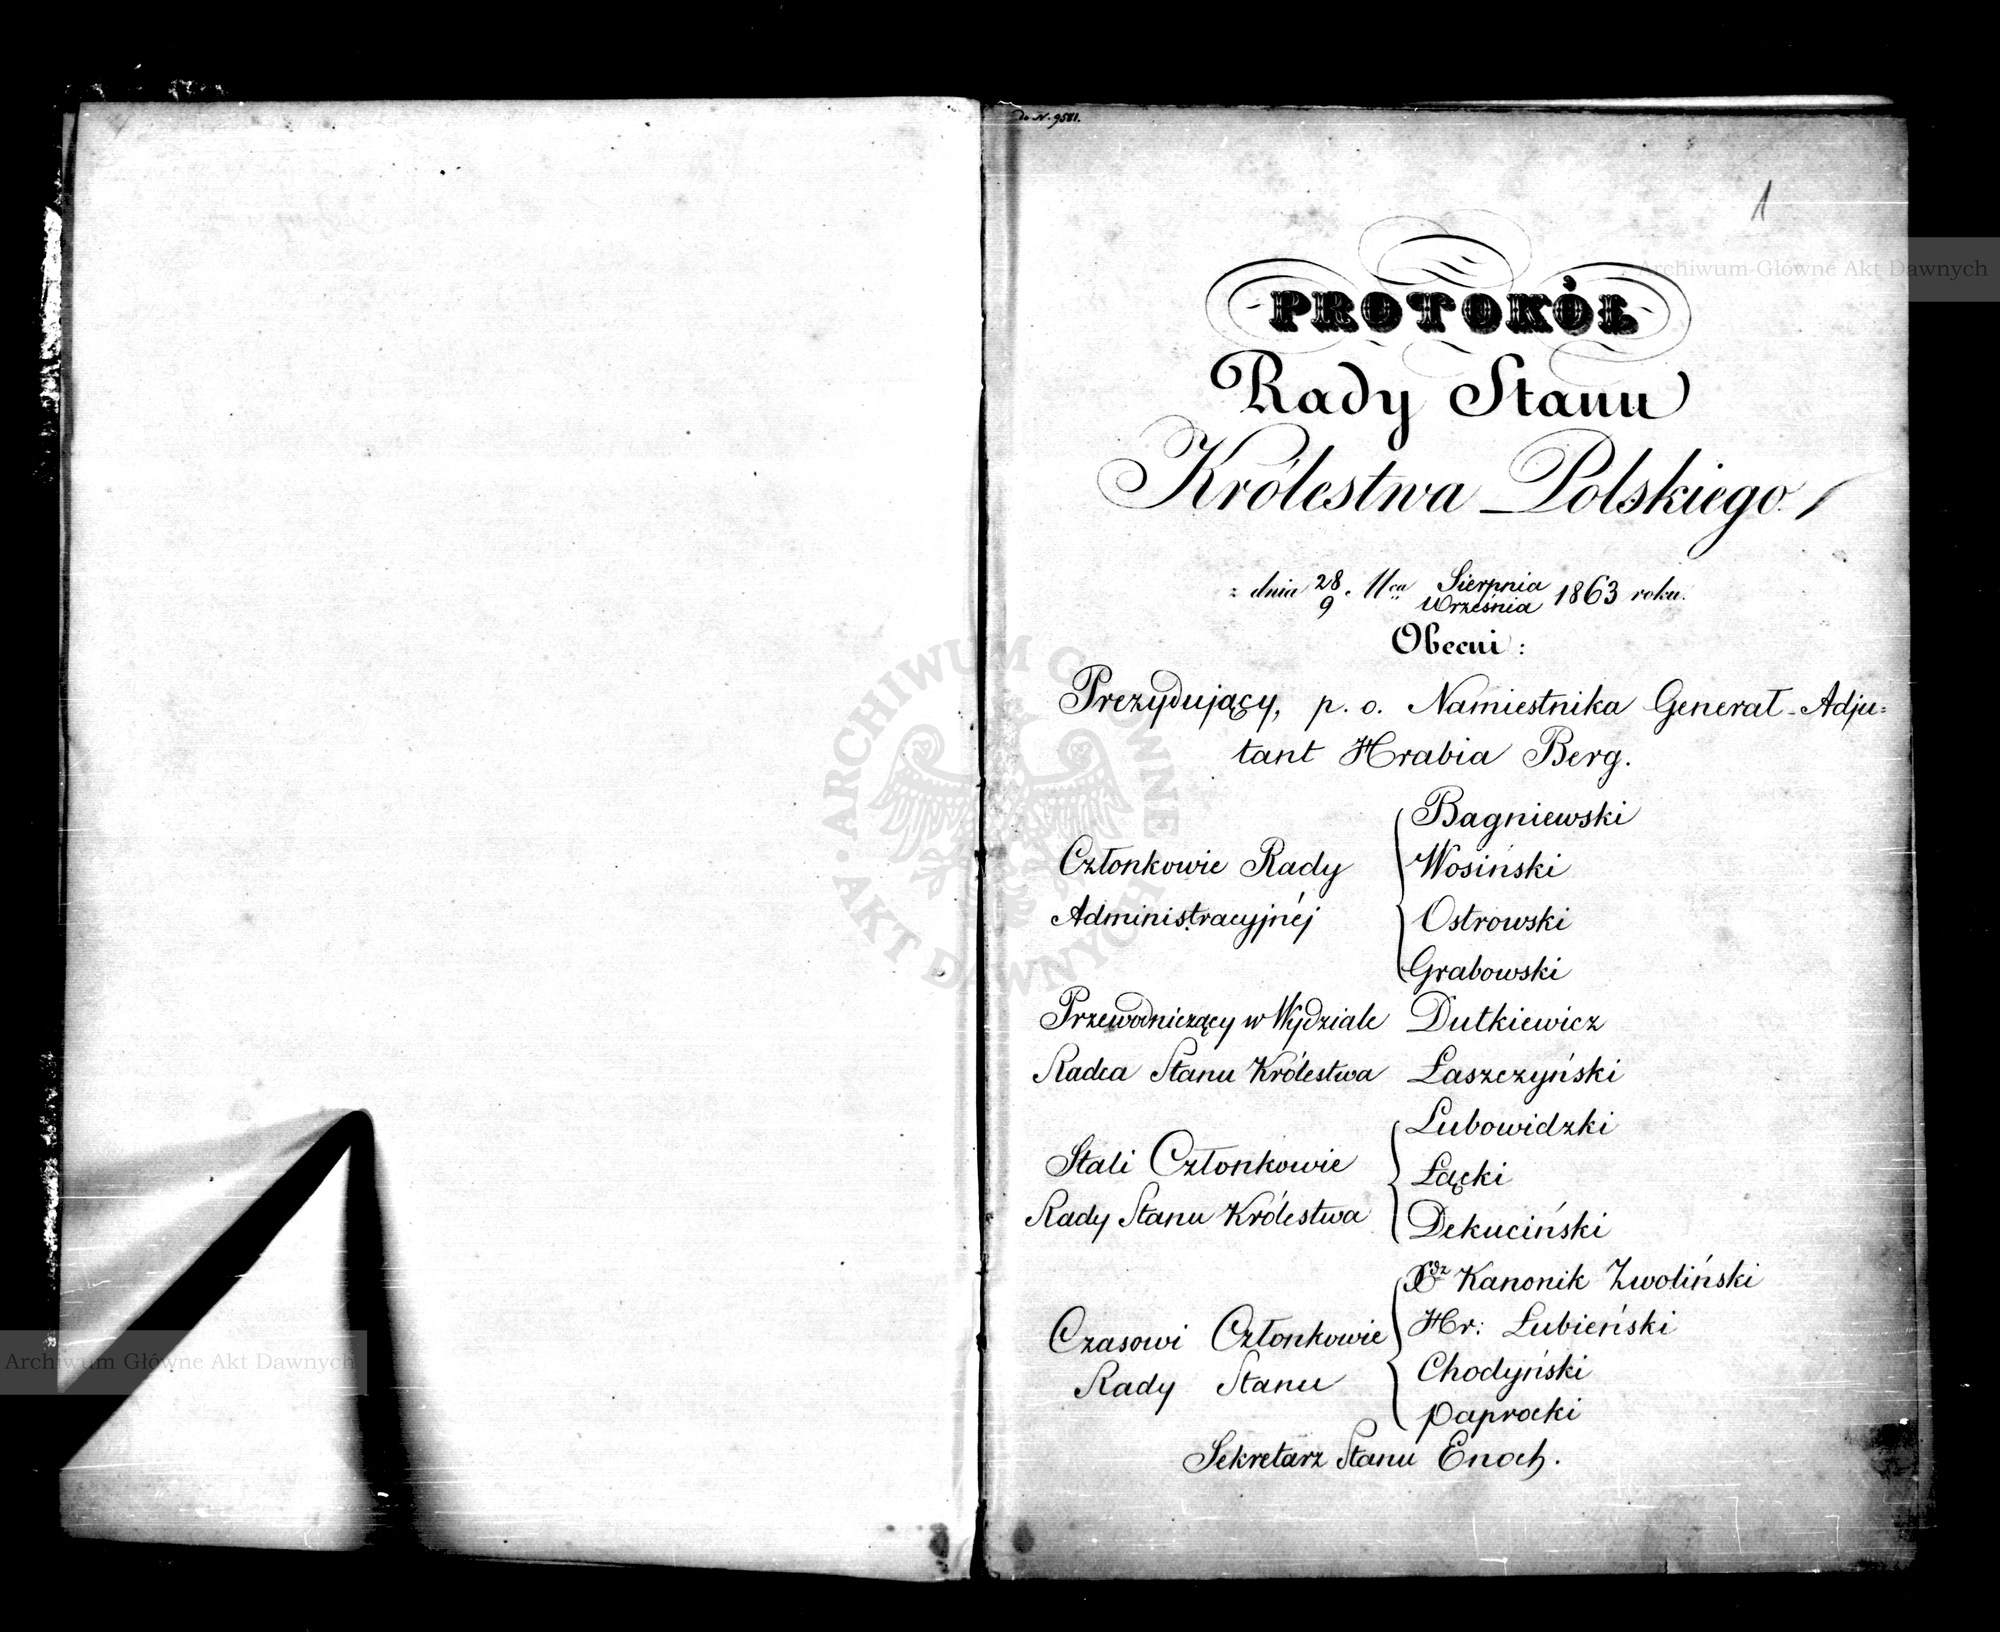 do N. 9581.
1
PROTOKÓŁ
Rady Stanu
Królestwa Polskiego.
z dnia 28/9 Sierpnia/Września 1863 roku.
Obecni:
Prezydujący, p. o. Namiestnika Generał-Adju=
tant Hrabia Berg.
Członkowie Rady
Administracyjnéj
Bagniewski
Wosiński
Ostrowski
Grabowski
Przewodniczący w Wydziale Dutkiewicz
Radca Stanu Królestwa Łaszczyński
Stali Członkowie
Rady Stanu Królestwa
Lubowidzki
Łącki
Dekuciński
Czasowi Członkowie
Rady Stanu
Xdz Kanonik Zwoliński
Hr: Łubieński
Chodyński
Paprocki
Sekretarz Stanu Enoch.
Archiwum Główne Akt Dawnych
Archiwum Główne Akt Dawnych
ARCHIWUM GŁÓWNE AKT DAWNYCH